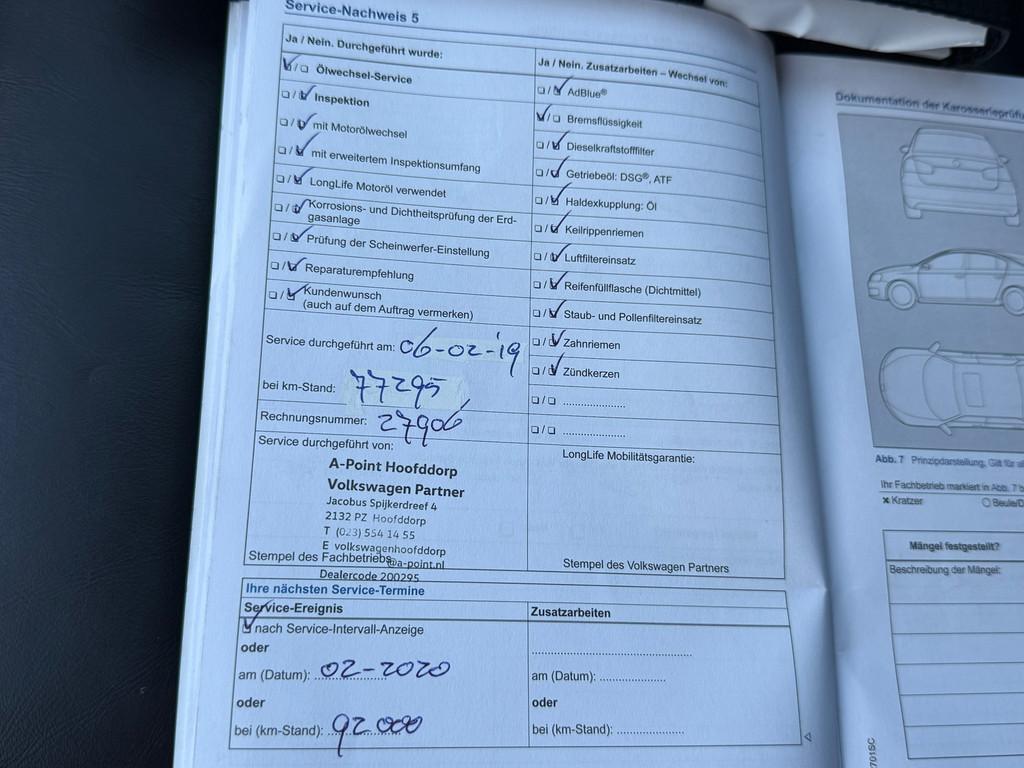 Service-Nachweis 5
Ja / Nein. Durchgeführt wurde:
Ölwechsel-Service
Inspektion
mit Motorölwechsel
mit erweitertem Inspektionsumfang
LongLife Motoröl verwendet
Korrosions- und Dichtheitsprüfung der Erd-
gasanlage
Prüfung der Scheinwerfer-Einstellung
Reparaturempfehlung
Kundenwunsch
(auch auf dem Auftrag vermerken)
Service durchgeführt am: 06-02-'19
bei km-Stand: 77295
Rechnungsnummer: 27906
Service durchgeführt von:
A-Point Hoofddorp
Volkswagen Partner
Jacobus Spijkerdreef 4
2132 PZ Hoofddorp
T (023) 554 14 55
E volkswagenhoofddorp
@a-point.nl
Stempel des Fachbetriebs
Dealercode 200295
Ja / Nein. Zusatzarbeiten – Wechsel von:
AdBlue®
Bremsflüssigkeit
Dieselkraftstofffilter
Getriebeöl: DSG®, ATF
Haldexkupplung: Öl
Keilrippenriemen
Luftfiltereinsatz
Reifenfüllflasche (Dichtmittel)
Staub- und Pollenfiltereinsatz
Zahnriemen
Zündkerzen
LongLife Mobilitätsgarantie:
Stempel des Volkswagen Partners
Ihre nächsten Service-Termine
Service-Ereignis
nach Service-Intervall-Anzeige
oder
am (Datum): 02-2020
oder
bei (km-Stand): 92.000
Zusatzarbeiten
am (Datum):
oder
bei (km-Stand):
Dokumentation der
Abb. 7 Prinzipdarstellung, Gilt für
Ihr Fachbetrieb markiert in Abb. 7
Kratzer
Mängel festgestellt?
Beschreibung der Mängel: